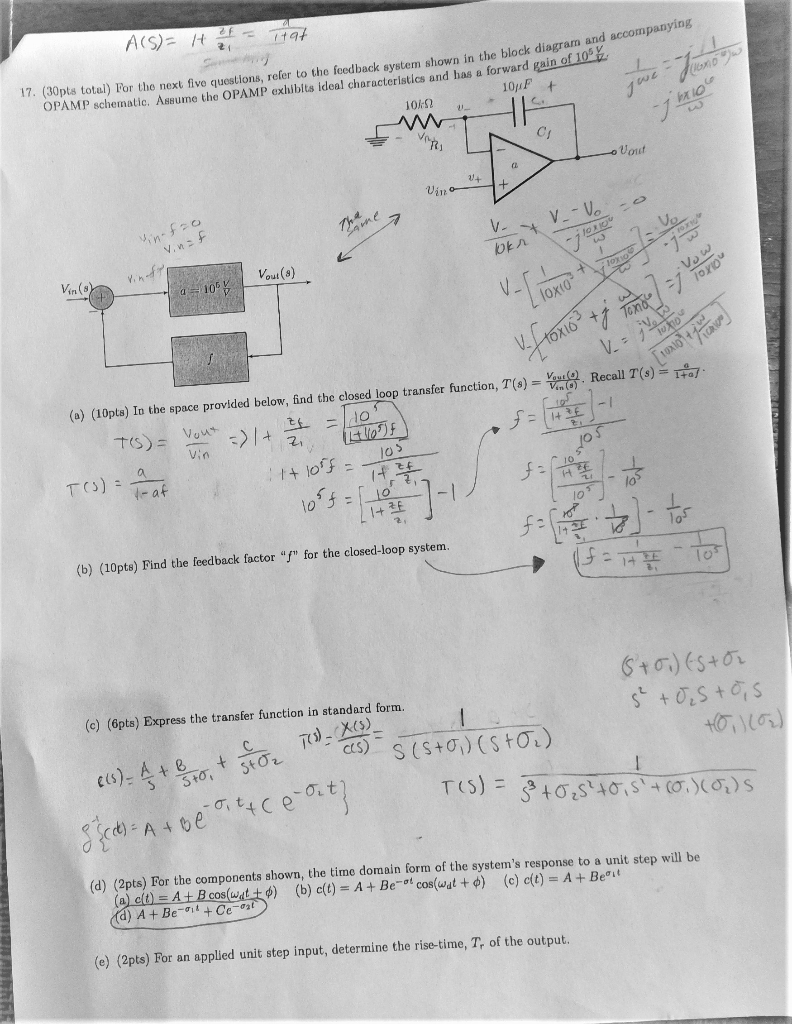 A(S) = 1+ zf/z1 = a/1+af
17. (30pts total) For the next five questions, refer to the feedback system shown in the block diagram and accompanying
OPAMP schematic. Assume the OPAMP exhibits ideal characteristics and has a forward gain of 10⁵ V/V.
1/jwc = -j 1/(10x10⁻⁶)w
10kΩ
10μF
R1
C1
a
Vin
Vout
V+
The same
Vin-f=0
Vin=f
V-/10kΩ + V- - Vo / = 0
Vin(s)
Vout(s)
a = 10⁵ V/V
f
(a) (10pts) In the space provided below, find the closed loop transfer function, T(s) = Vout(s)/Vin(s). Recall T(s) = a/1+af.
T(S) = Vout/Vin => 1+ zf/z1 = 10⁵/1+(10⁵)f
T(S) = a/1-af
1+10⁵f = 10⁵/1+ zf/z1
10⁵f = [10⁵/1+ zf/z1] -1
f = [10⁵/1+ zf/z1] -1 / 10⁵
f = [10⁵/1+ zf/z1 / 10⁵] - 1/10⁵
f = [10⁵/1+ zf/z1 · 1/10⁵] - 1/10⁵
f = 1/1+ zf/z1 - 1/10⁵
(b) (10pts) Find the feedback factor "f" for the closed-loop system.
(S+σ1)(S+σ2
S² + σ2S + σ1S
+(σ1)(σ2)
(c) (6pts) Express the transfer function in standard form.
T(S) = X(S)/C(S) = 1/S(S+σ1)(S+σ2)
c(s) = A/S + B/S+σ1 + C/S+σ2
T(S) = 1/S³+σ2S²+σ1S²+(σ1)(σ2)S
c(t) = A + Be^-σ1t + Ce^-σ2t}
(d) (2pts) For the components shown, the time domain form of the system's response to a unit step will be
(a) c(t) = A + B cos(ωdt + φ) (b) c(t) = A + Be^-σt cos(ωdt + φ) (c) c(t) = A + Be^σ1t
(d) A + Be^-σ1t + Ce^-σ2t
(e) (2pts) For an applied unit step input, determine the rise-time, Tr of the output.